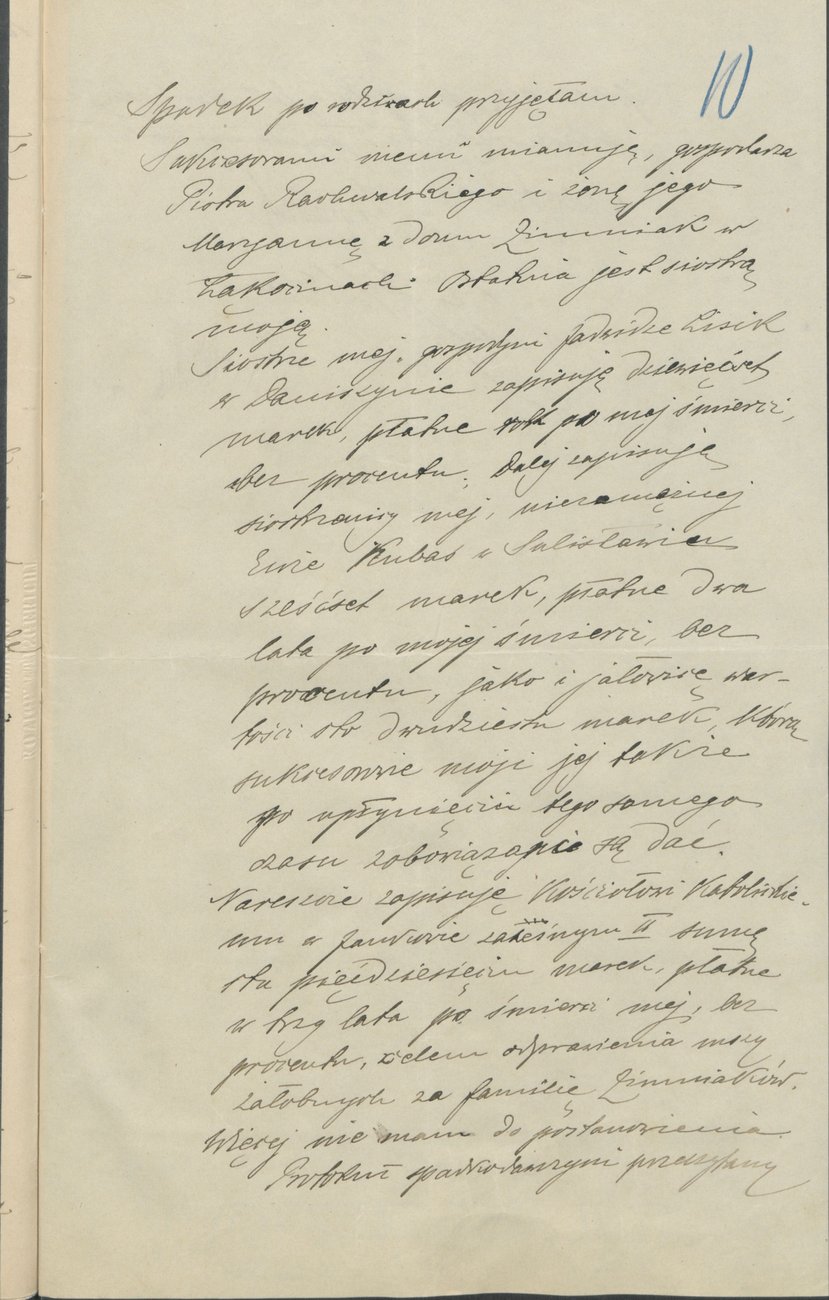 10
Spadek po rodzicach przyjęłam.
Sukcesorami memi mianuję, gospodarza
Piotra Rachwalskiego i żonę jego
Maryannę z domu Zimniak w
Łąkocinach. Ostatnia jest siostrą
moją.
Siostrze mej, gospodyni Jadwidze Lisik
w Daniszynie zapisuję dziewięćset
marek, płatne rok po mej śmierci,
bez procentu. Dalej zapisuję
siostrzenicy mej, niezamężnej
Ewie Kubas w Sulisławiu
sześćset marek, płatne dwa
lata po mojej śmierci, bez
procentu, jako i jałowicę war-
tości sto dwudziestu marek, którą
sukcesorowie moji jej także
po upłynięciu tego samego
czasu zobowiązani są dać.
Nareszcie zapisuję Kościołowi Katolickie-
mu w Jankowie zaleśnym II sumę
stu pięćdziesięciu marek, płatne
w trzy lata po śmierci mej, bez
procentu, celem odprawienia mszy
żałobnych za familię Zimniaków.
Więcej nie mam do postanowienia.
Protokuł spadkodawczyni przeczytany